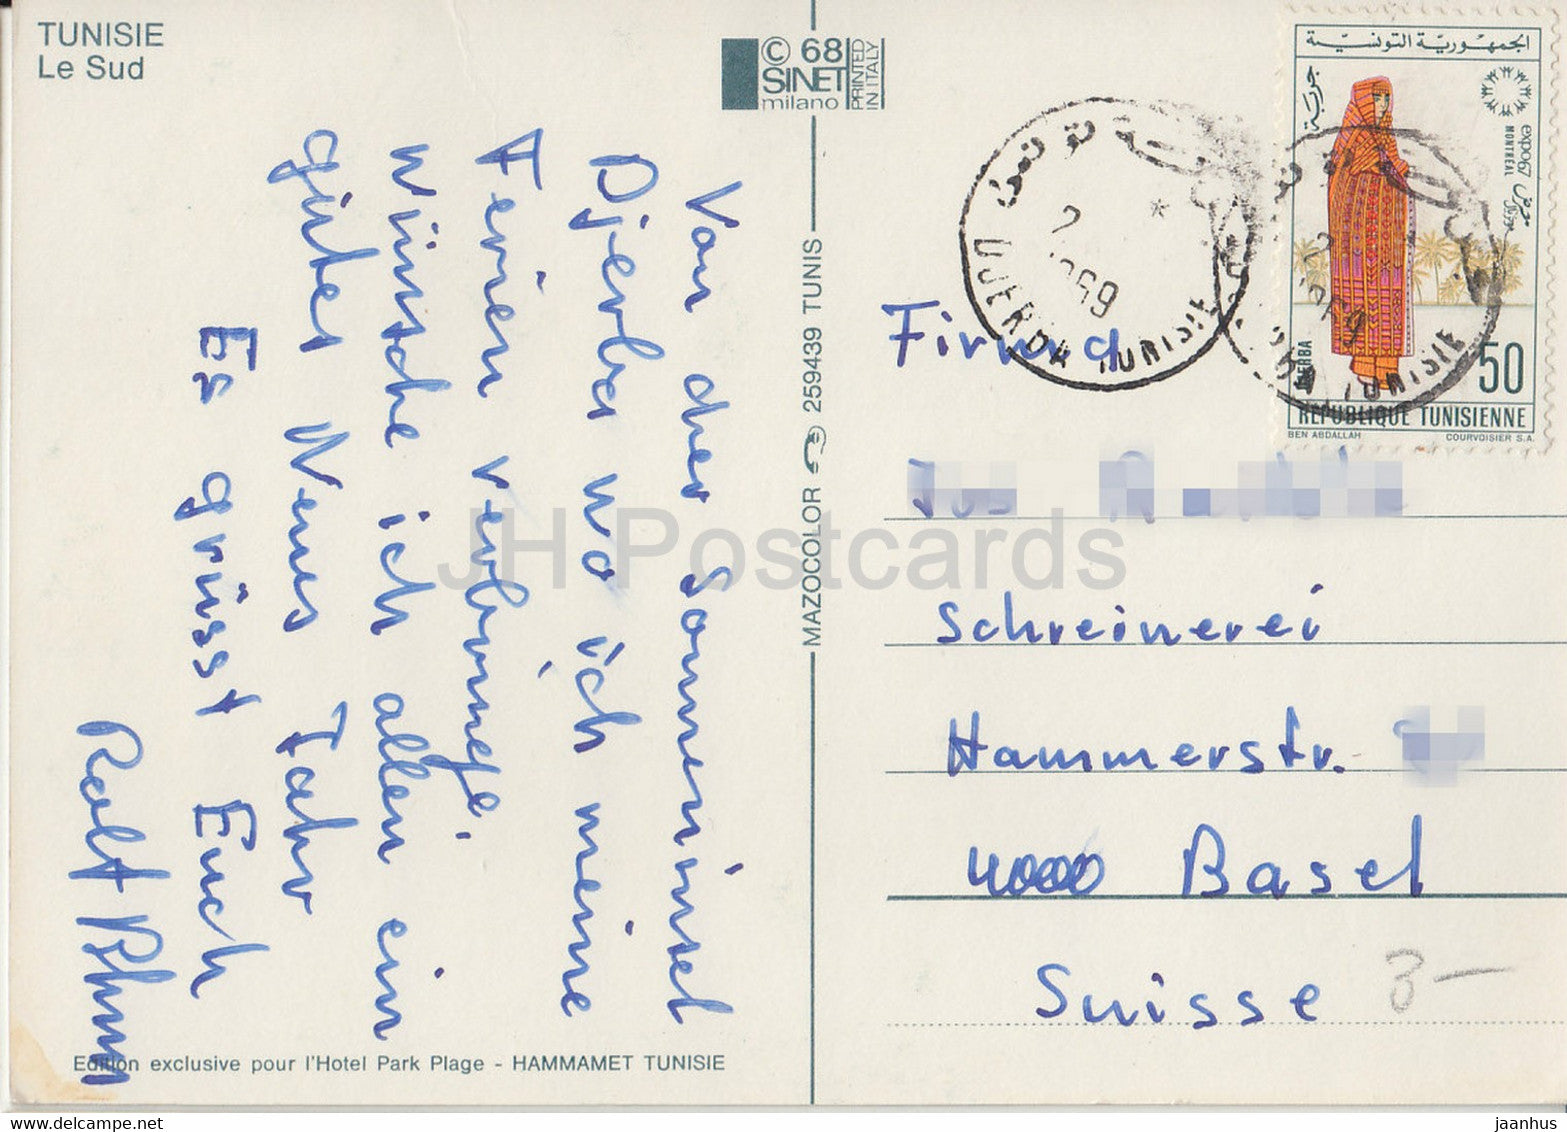 TUNISIE
Le Sud
© 68
SINET
milano
PRINTED
IN ITALY
Von der Sonneninsel
Djerba wo ich meine
Ferien verbringe,
Wünsche ich allen ein
gutes Neues Jahr
Es grüsst Euch
Rolf
MAZOCOLOR 259439 TUNIS
Edition exclusive pour l'Hotel Park Plage - HAMMAMET TUNISIE
الجمهورية التونسية
جربة
expo67
MONTRÉAL
معرض
DJERBA
50
REPUBLIQUE TUNISIENNE
BEN ABDALLAH
COURVOISIER S.A.
تونس
2
1969
DJERBA TUNISIE
2
1969
TUNISIE
Firma
Schreinerei
Hammerstr.
4000 Basel
Suisse
3-
JH Postcards
jaanhus